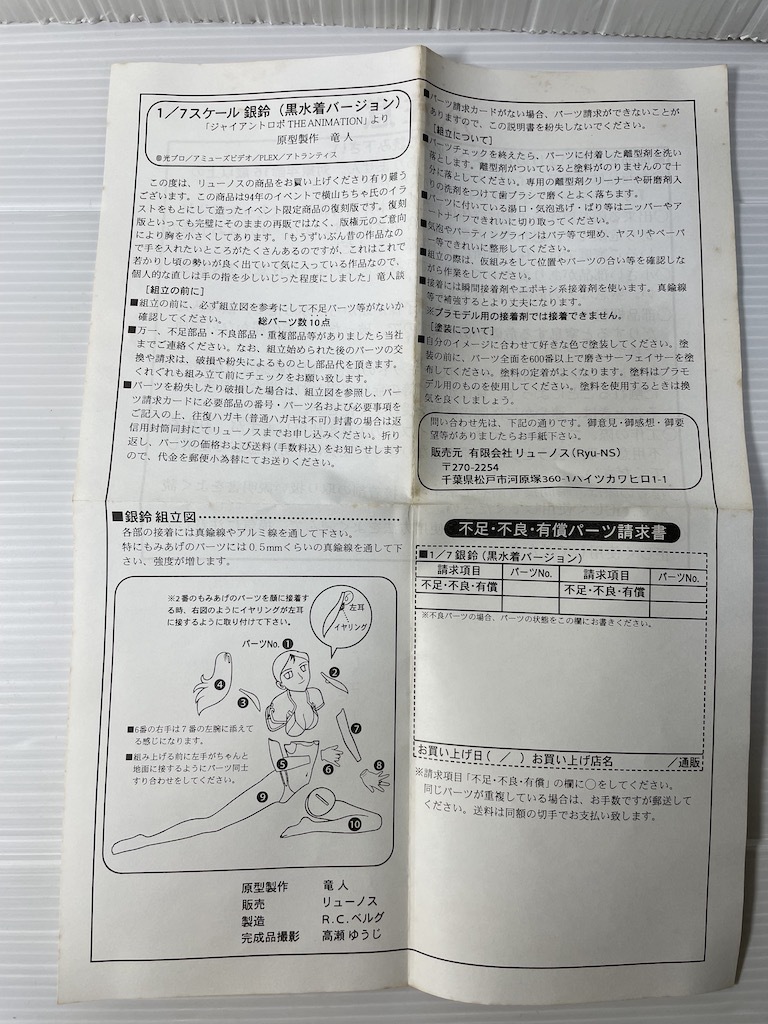 1／7スケール 銀鈴（黒水着バージョン）
「ジャイアントロボ THE ANIMATION」より
原型製作　竜 人
●光プロ／アミューズビデオ／PLEX／アトランティス
この度は、リューノスの商品をお買い上げくださり有り難う
ございます。この商品は94年のイベントで横山ちちゃ氏のイラ
ストをもとにして造ったイベント限定商品の復刻版です。復刻
版といっても完璧にそのままの再版ではなく、版権元のご意向
により胸を小さくしてあります。「もうずいぶん昔の作品なの
で手を入れたいところがたくさんあるのですが、これはこれで
若かりし頃の勢いが良く出ていて気に入っている作品なので、
個人的な直しは手の指を少しいじった程度にしました」竜人談
［組立の前に］
■組立の前に、必ず組立図を参考にして不足パーツ等がないか
確認してください。　総パーツ数10点
■万一、不足部品・不良部品・重複部品等がありましたら当社
までご連絡ください。なお、組立始められた後のパーツの交
換や請求は、破損や紛失によるものとし部品代を頂きます。
くれぐれも組み立て前にチェックをお願い致します。
■パーツを紛失したり破損した場合は、組立図を参照し、パー
ツ請求カードに必要部品の番号・パーツ名および必要事項を
ご記入の上、往復ハガキ（普通ハガキは不可）封書の場合は返
信用封筒同封にてリューノスまでお申し込みください。折り
返し、パーツの価格および送料（手数料込）をお知らせします
ので、代金を郵便小為替にてお送りください。
■パーツ請求カードがない場合、パーツ請求ができないことが
ありますので、この説明書を紛失しないでください。
［組立について］
■パーツチェックを終えたら、パーツに付着した離型剤を洗い
落とします。離型剤がついていると塗料がのりませんので十
分に落としてください。専用の離型剤クリーナーや研磨剤入
りの洗剤をつけて歯ブラシで磨くとよく落ちます。
■パーツに付いている湯口・気泡逃げ・ばり等はニッパーやア
ートナイフできれいに切り取ってください。
■気泡やパーティングラインはパテ等で埋め、ヤスリやペーパ
ー等できれいに整形してください。
■組立の際は、仮組みをして位置やパーツの合い等を確認しな
がら作業をしてください。
■接着には瞬間接着剤やエポキシ系接着剤を使います。真鍮線
等で補強するとより丈夫になります。
※プラモデル用の接着剤では接着できません。
［塗装について］
■自分のイメージに合わせて好きな色で塗装してください。塗
装の前に、パーツ全面を600番以上で磨きサーフェイサーを塗
布してください。塗料の定着がよくなります。塗料はプラモ
デル用のものを使用してください。塗料を使用するときは換
気を良くしましょう。
問い合わせ先は、下記の通りです。御意見・御感想・御要
望等がありましたらお手紙下さい。
販売元 有限会社 リューノス（Ryu-NS）
〒270-2254
千葉県松戸市河原塚360-1ハイツカワヒロ1-1
■銀鈴 組立図
各部の接着には真鍮線やアルミ線を通して下さい。
特にもみあげのパーツには0.5mmくらいの真鍮線を通して下
さい、強度が増します。
※2番のもみあげのパーツを顔に接着す
る時、右図のようにイヤリングが左耳
に接するように取り付けて下さい。
左耳
イヤリング
パーツNo.❶
❷
❸
❹
❺
❻
❼
❽
❾
❿
■6番の右手は7番の左腕に添えて
る感じになります。
■組み上げる前に左手がちゃんと
地面に接するようにパーツ同士
すり合わせをしてください。
原型製作　竜 人
販売　リューノス
製造　R.C.ベルグ
完成品撮影　高瀬 ゆうじ
不足・不良・有償パーツ請求書
■1／7 銀鈴（黒水着バージョン）
請求項目　パーツNo.　請求項目　パーツNo.
不足・不良・有償　不足・不良・有償
※不良パーツの場合、パーツの状態をこの欄にお書きください。
お買い上げ日（　／　）お買い上げ店名　／通販
※請求項目「不足・不良・有償」の欄に○をしてください。
同じパーツが重複している場合は、お手数ですが郵送して
ください。送料は同額の切手でお支払い致します。